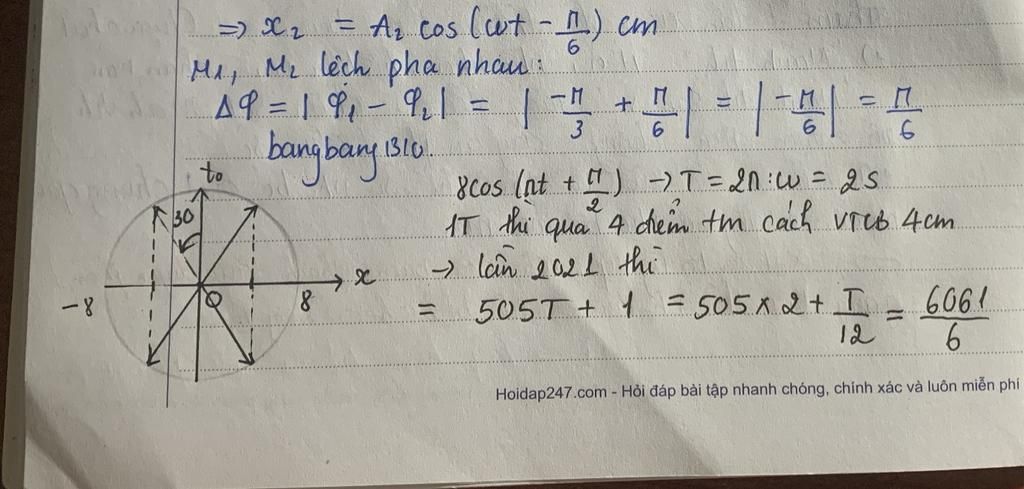 ⇒ x₂ = A₂ cos(ωt - π/6) cm
M₁, M₂ lệch pha nhau:
Δφ = |φ₁ - φ₂| = |-π/3 + π/6| = |-π/6| = π/6
bangbang1310.
t₀
30
8cos(πt + π/2) → T = 2π:ω = 2s
1T thì qua 4 điểm tm cách VTCB 4cm
→ lần 2021 thì
x
-8
O
8
= 505T + 1 = 505x2 + T/12 = 6061/6
Hoidap247.com - Hỏi đáp bài tập nhanh chóng, chính xác và luôn miễn phí